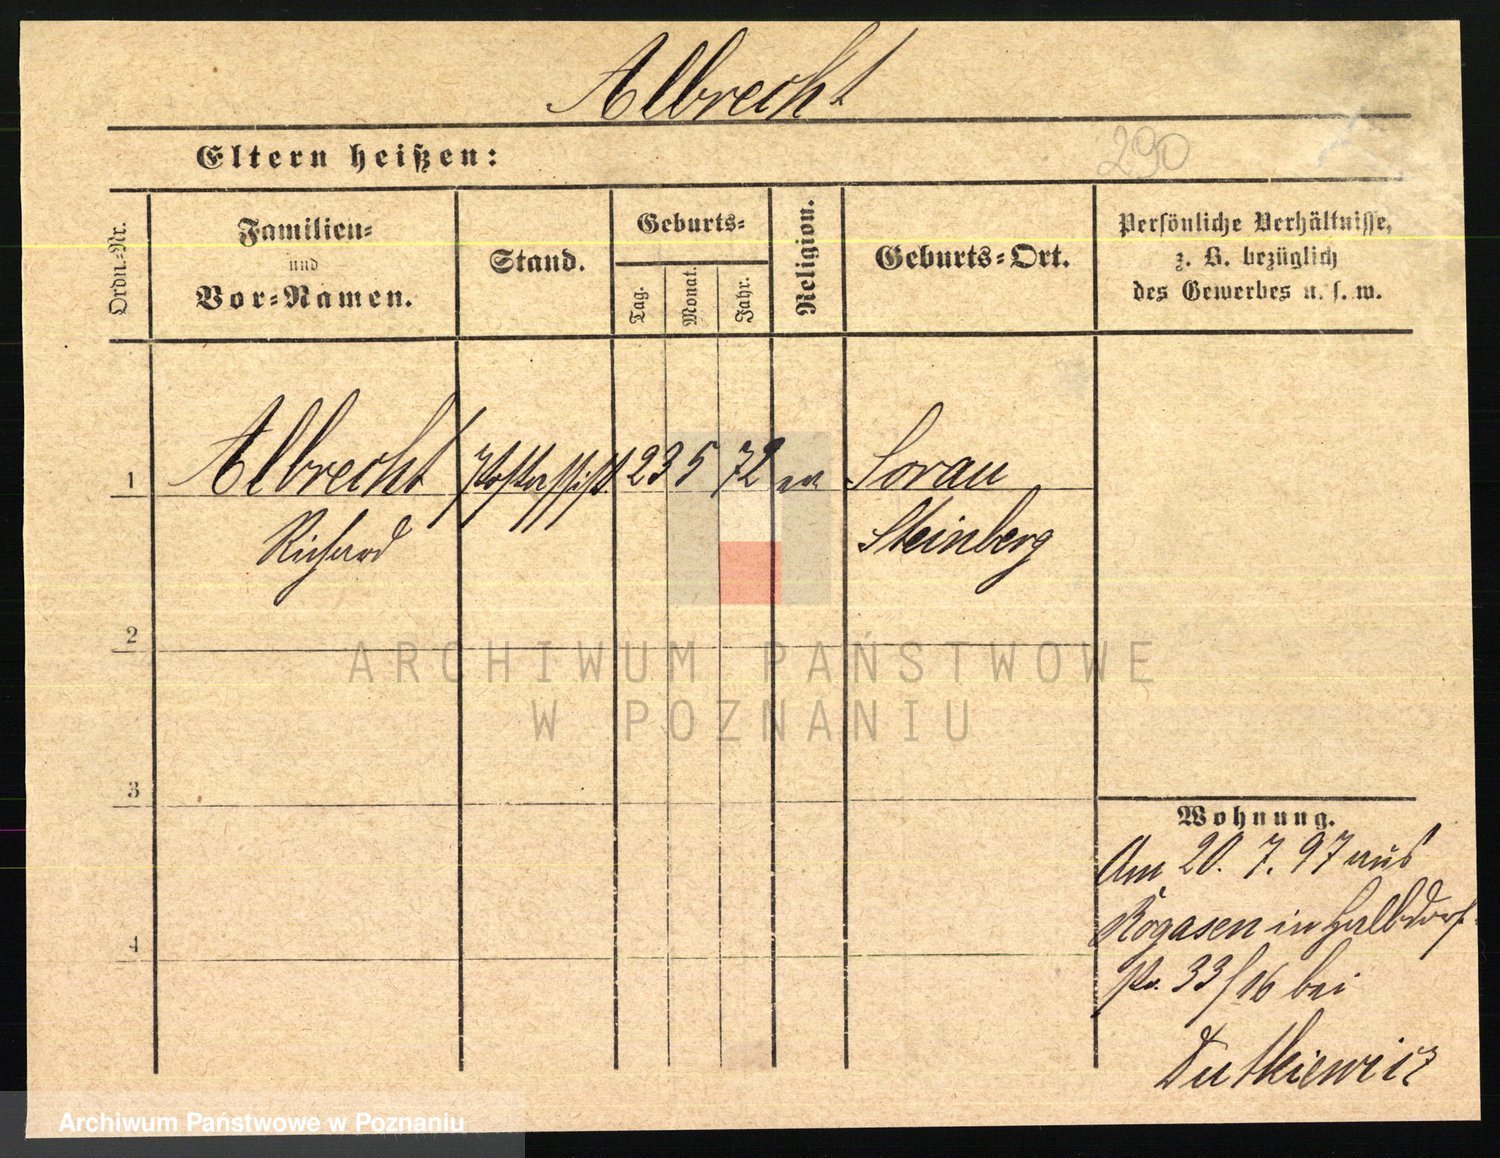 Albrecht
290
Eltern heißen:
Ordn.-Nr.
Familien-
und
Vor-Namen.
Stand.
Geburts-
Tag.
Monat.
Jahr.
Religion.
Geburts-Ort.
Persönliche Verhältnisse,
z. B. bezüglich
des Gewerbes u. s. w.
1 Albrecht Postassist. 23 5 72 ev Sorau
Richard Steinberg
2
3
4
Wohnung.
Am 20. 7. 97 aus
Rogasen in Halbdorf-
str. 33/16 bei
Dutkiewicz
ARCHIWUM PAŃSTWOWE
W POZNANIU
Archiwum Państwowe w Poznaniu